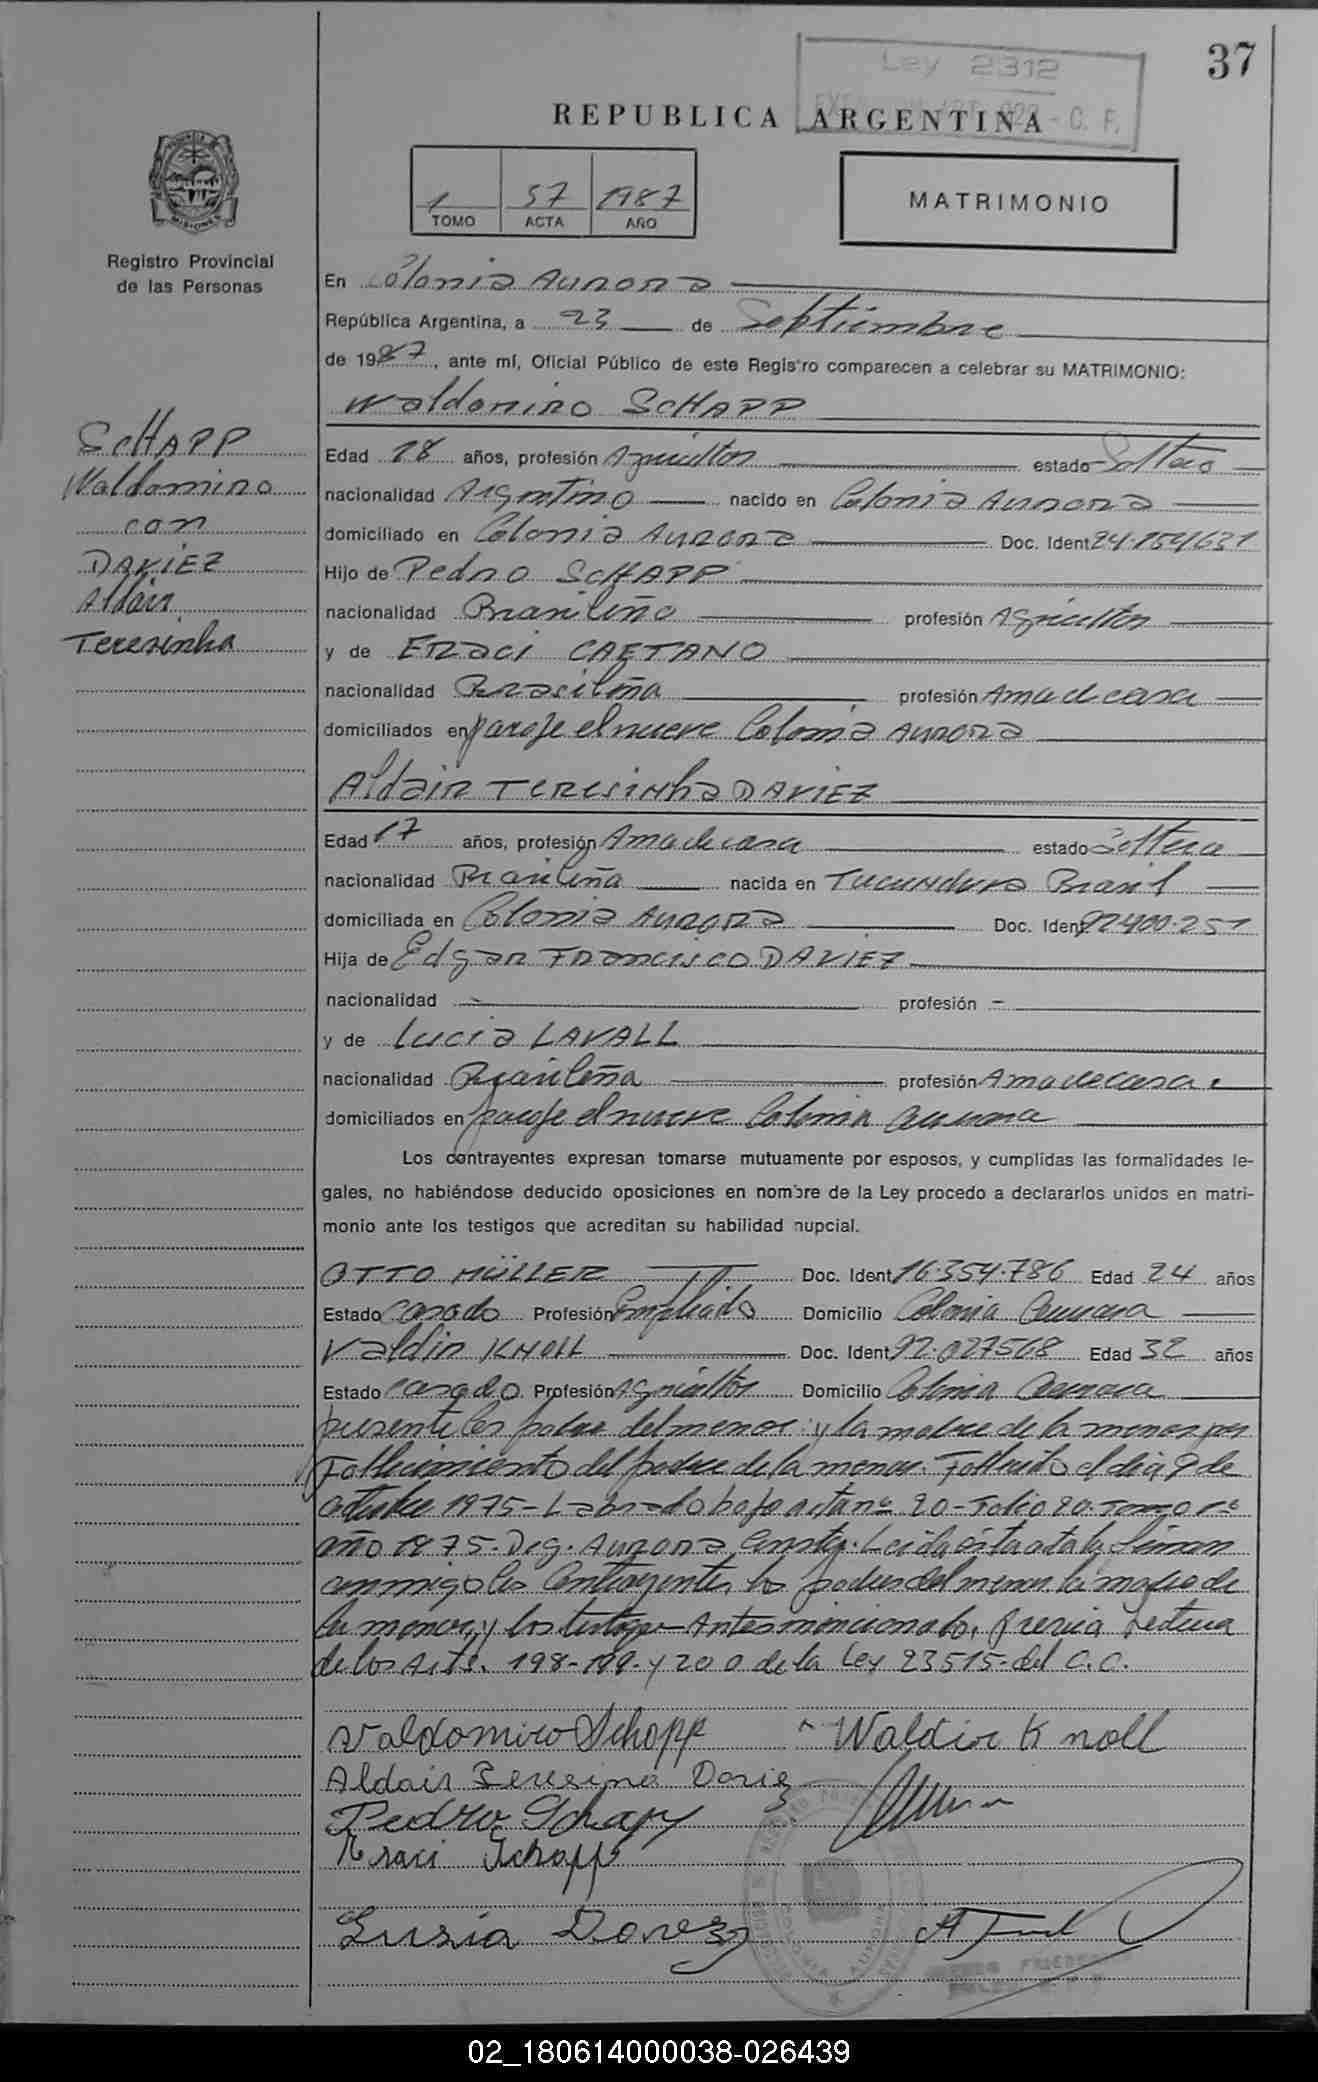 37
Ley 2312
REPUBLICA ARGENTINA
- C. F.
1 57 1987
TOMO ACTA AÑO
MATRIMONIO
MISIONES
Registro Provincial
de las Personas
SCHAPP
Waldomiro
con
DAVIEZ
Aldair
Teresinha
En Colonia Aurora
República Argentina, a 23 de Septiembre
de 1987, ante mí, Oficial Público de este Registro comparecen a celebrar su MATRIMONIO:
Waldomiro SCHAPP
Edad 18 años, profesión Agricultor estado Soltero
nacionalidad Argentino nacido en Colonia Aurora
domiciliado en Colonia Aurora Doc. Ident 24.154631
Hijo de Pedro SCHAPP
nacionalidad Brasileño profesión Agricultor
y de Eraci CAETANO
nacionalidad Brasileña profesión Ama de casa
domiciliados en paraje el nueve Colonia Aurora
Aldair Teresinha DAVIEZ
Edad 17 años, profesión Ama de casa estado Soltera
nacionalidad Brasileña nacida en Tucunduva Brasil
domiciliada en Colonia Aurora Doc. Ident 92400.251
Hija de Edgar Francisco DAVIEZ
nacionalidad - profesión -
y de Lucia LAVALL
nacionalidad Brasileña profesión Ama de casa.
domiciliados en paraje el nueve Colonia Aurora
Los contrayentes expresan tomarse mutuamente por esposos, y cumplidas las formalidades le-
gales, no habiéndose deducido oposiciones en nombre de la Ley procedo a declararlos unidos en matri-
monio ante los testigos que acreditan su habilidad nupcial.
OTTO MÜLLER Doc. Ident 16.354.786 Edad 24 años
Estado casado Profesión Empleado Domicilio Colonia Aurora
Valdir KNOLL Doc. Ident 92.027568 Edad 32 años
Estado casado Profesión Agricultor Domicilio Colonia Aurora
presente los padres del menor: y la madre de la menor por
Fallecimiento del padre de la menor. Fallecido el dia 9 de
octubre 1975 - Labrado bajo acta nº 20 - Folio 20. Tomo 1º
año 1975. Deg. Aurora Consta. Leida esta acta la firman
conmigo los Contrayentes, los padres del menor la madre de
la menor, y los testigos Antes mencionado, previa lectura
de los Arts. 198-199- y 200 de la Ley 23515- del C.C.
Valdomiro Schapp Waldir Knoll
Aldair Teresina Davies
Pedro Schapp
Eraci Schapp
COLONIA AURORA
02_180614000038-026439